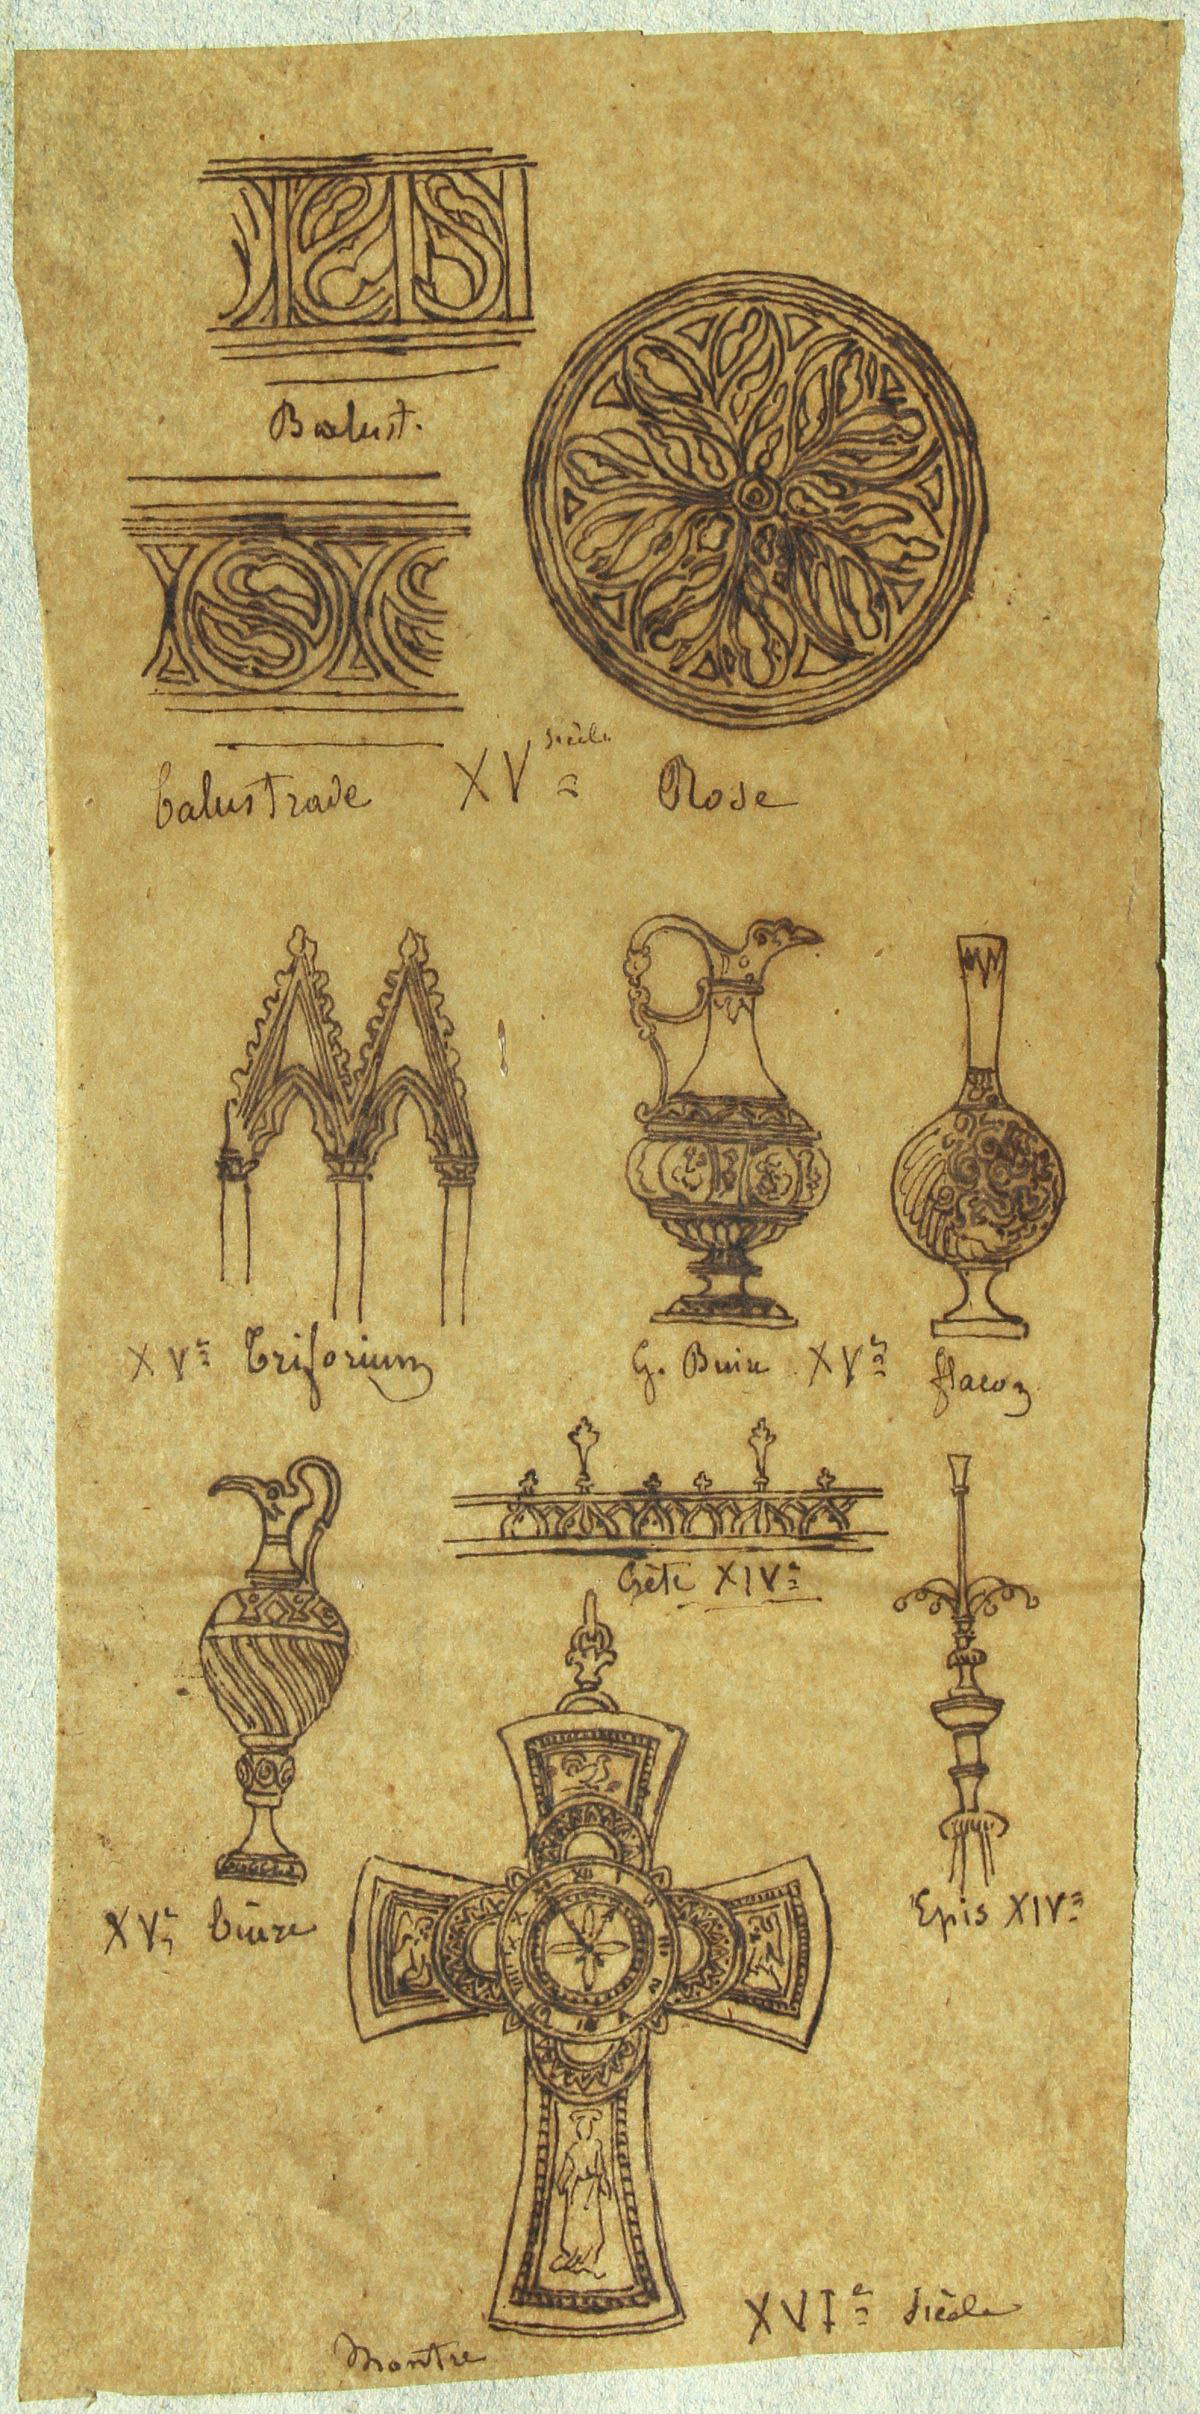 Balust.
balustrade XVe siècle Rose
XVe Triforium
G. Buire XVe flacon
Crête XIVe
XVe buire
Epis XIVe
XVIe siècle
Montre